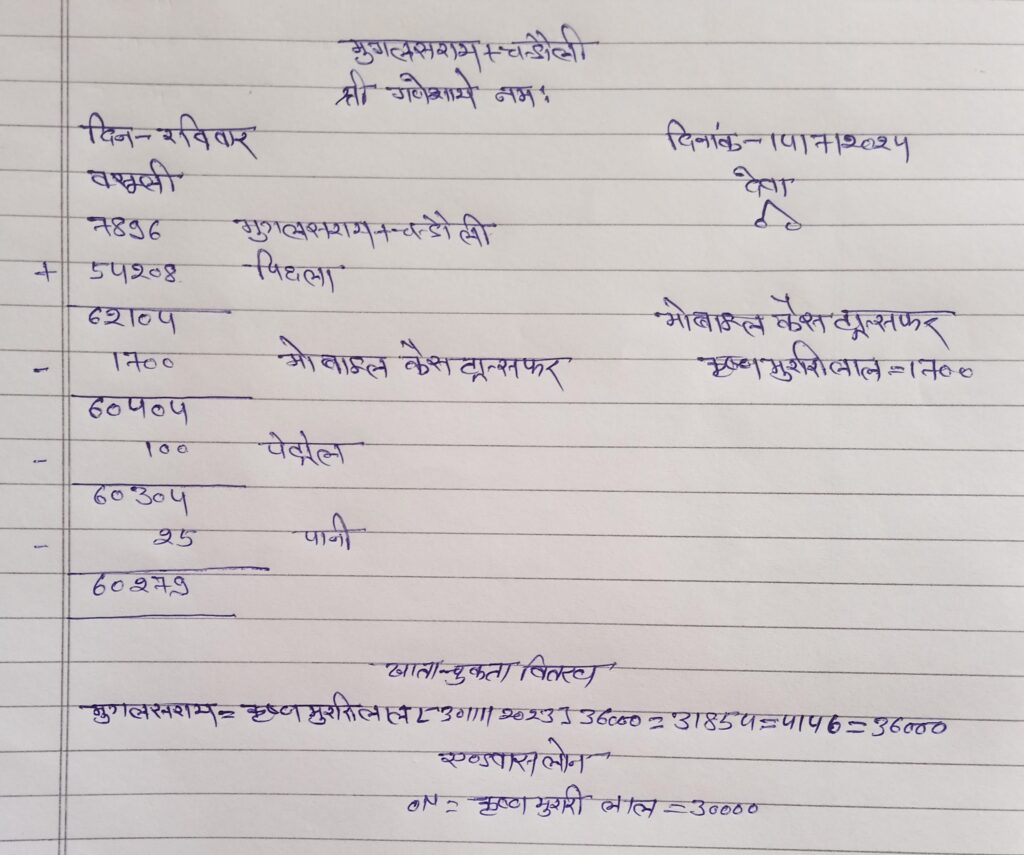 मुगलसराय+चन्डौली
श्री गणेशाये नमः
दिन-रविवार दिनांक-14|7|2024
वसूली देवा
7896 मुगलसराय+चन्डौली
+ 54208 पिछला
62104 मोबाइल कैस ट्रान्सफर
- 1700 मोबाइल कैस ट्रान्सफर कृष्ण मुरारी लाल=1700
60404
- 100 पेट्रोल
60304
- 25 पानी
60279
खाता-चुकता वितरण
मुगलसराय= कृष्ण मुरारी लाल [30|11|2023] 36000=31854=4146=36000
एडवांस लोन
ON= कृष्ण मुरारी लाल =30000